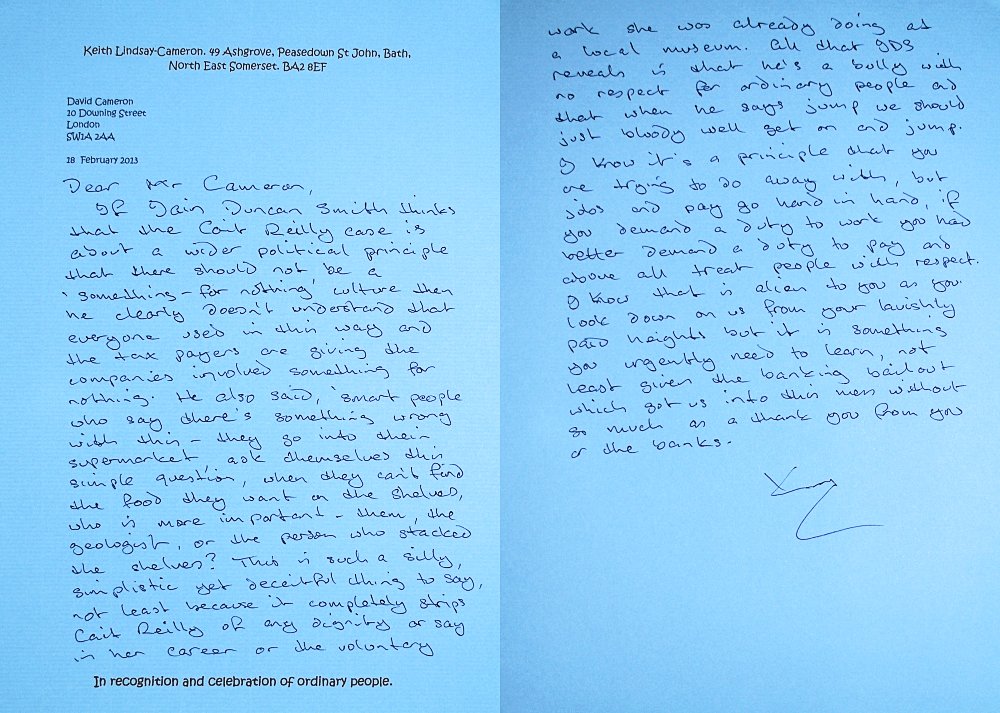 Keith Lindsay-Cameron. 49 Ashgrove, Peasedown St John, Bath,
North East Somerset. BA2 8EF
David Cameron
10 Downing Street
London
SW1A 2AA
18 February 2013
Dear Mr Cameron,
If Iain Duncan Smith thinks
that the Cait Reilly case is
about a wider political principle
that there should not be a
'something-for nothing' culture then
he clearly doesn't understand that
everyone used in this way and
the tax payers are giving the
companies involved something for
nothing. He also said, 'smart people
who say there's something wrong
with this - they go into their
supermarket, ask themselves this
simple question, when they can't find
the food they want on the shelves,
who is more important - them, the
geologist, or the person who stacked
the shelves? This is such a silly,
simplistic yet deceitful thing to say,
not least because it completely strips
Cait Reilly of any dignity or say
in her career or the voluntary
In recognition and celebration of ordinary people.
work she was already doing at
a local museum. All that IDS
reveals is that he's a bully with
no respect for ordinary people and
that when he says jump we should
just bloody well get on and jump.
I know it's a principle that you
are trying to do away with, but
jobs and pay go hand in hand, if
you demand a duty to work you had
better demand a duty to pay and
above all treat people with respect.
I know that is alien to you as you
look down on us from your lavishly
paid heights but it is something
you urgently need to learn, not
least given the banking bailout
which got us into this mess without
so much as a thank you from you
or the banks.